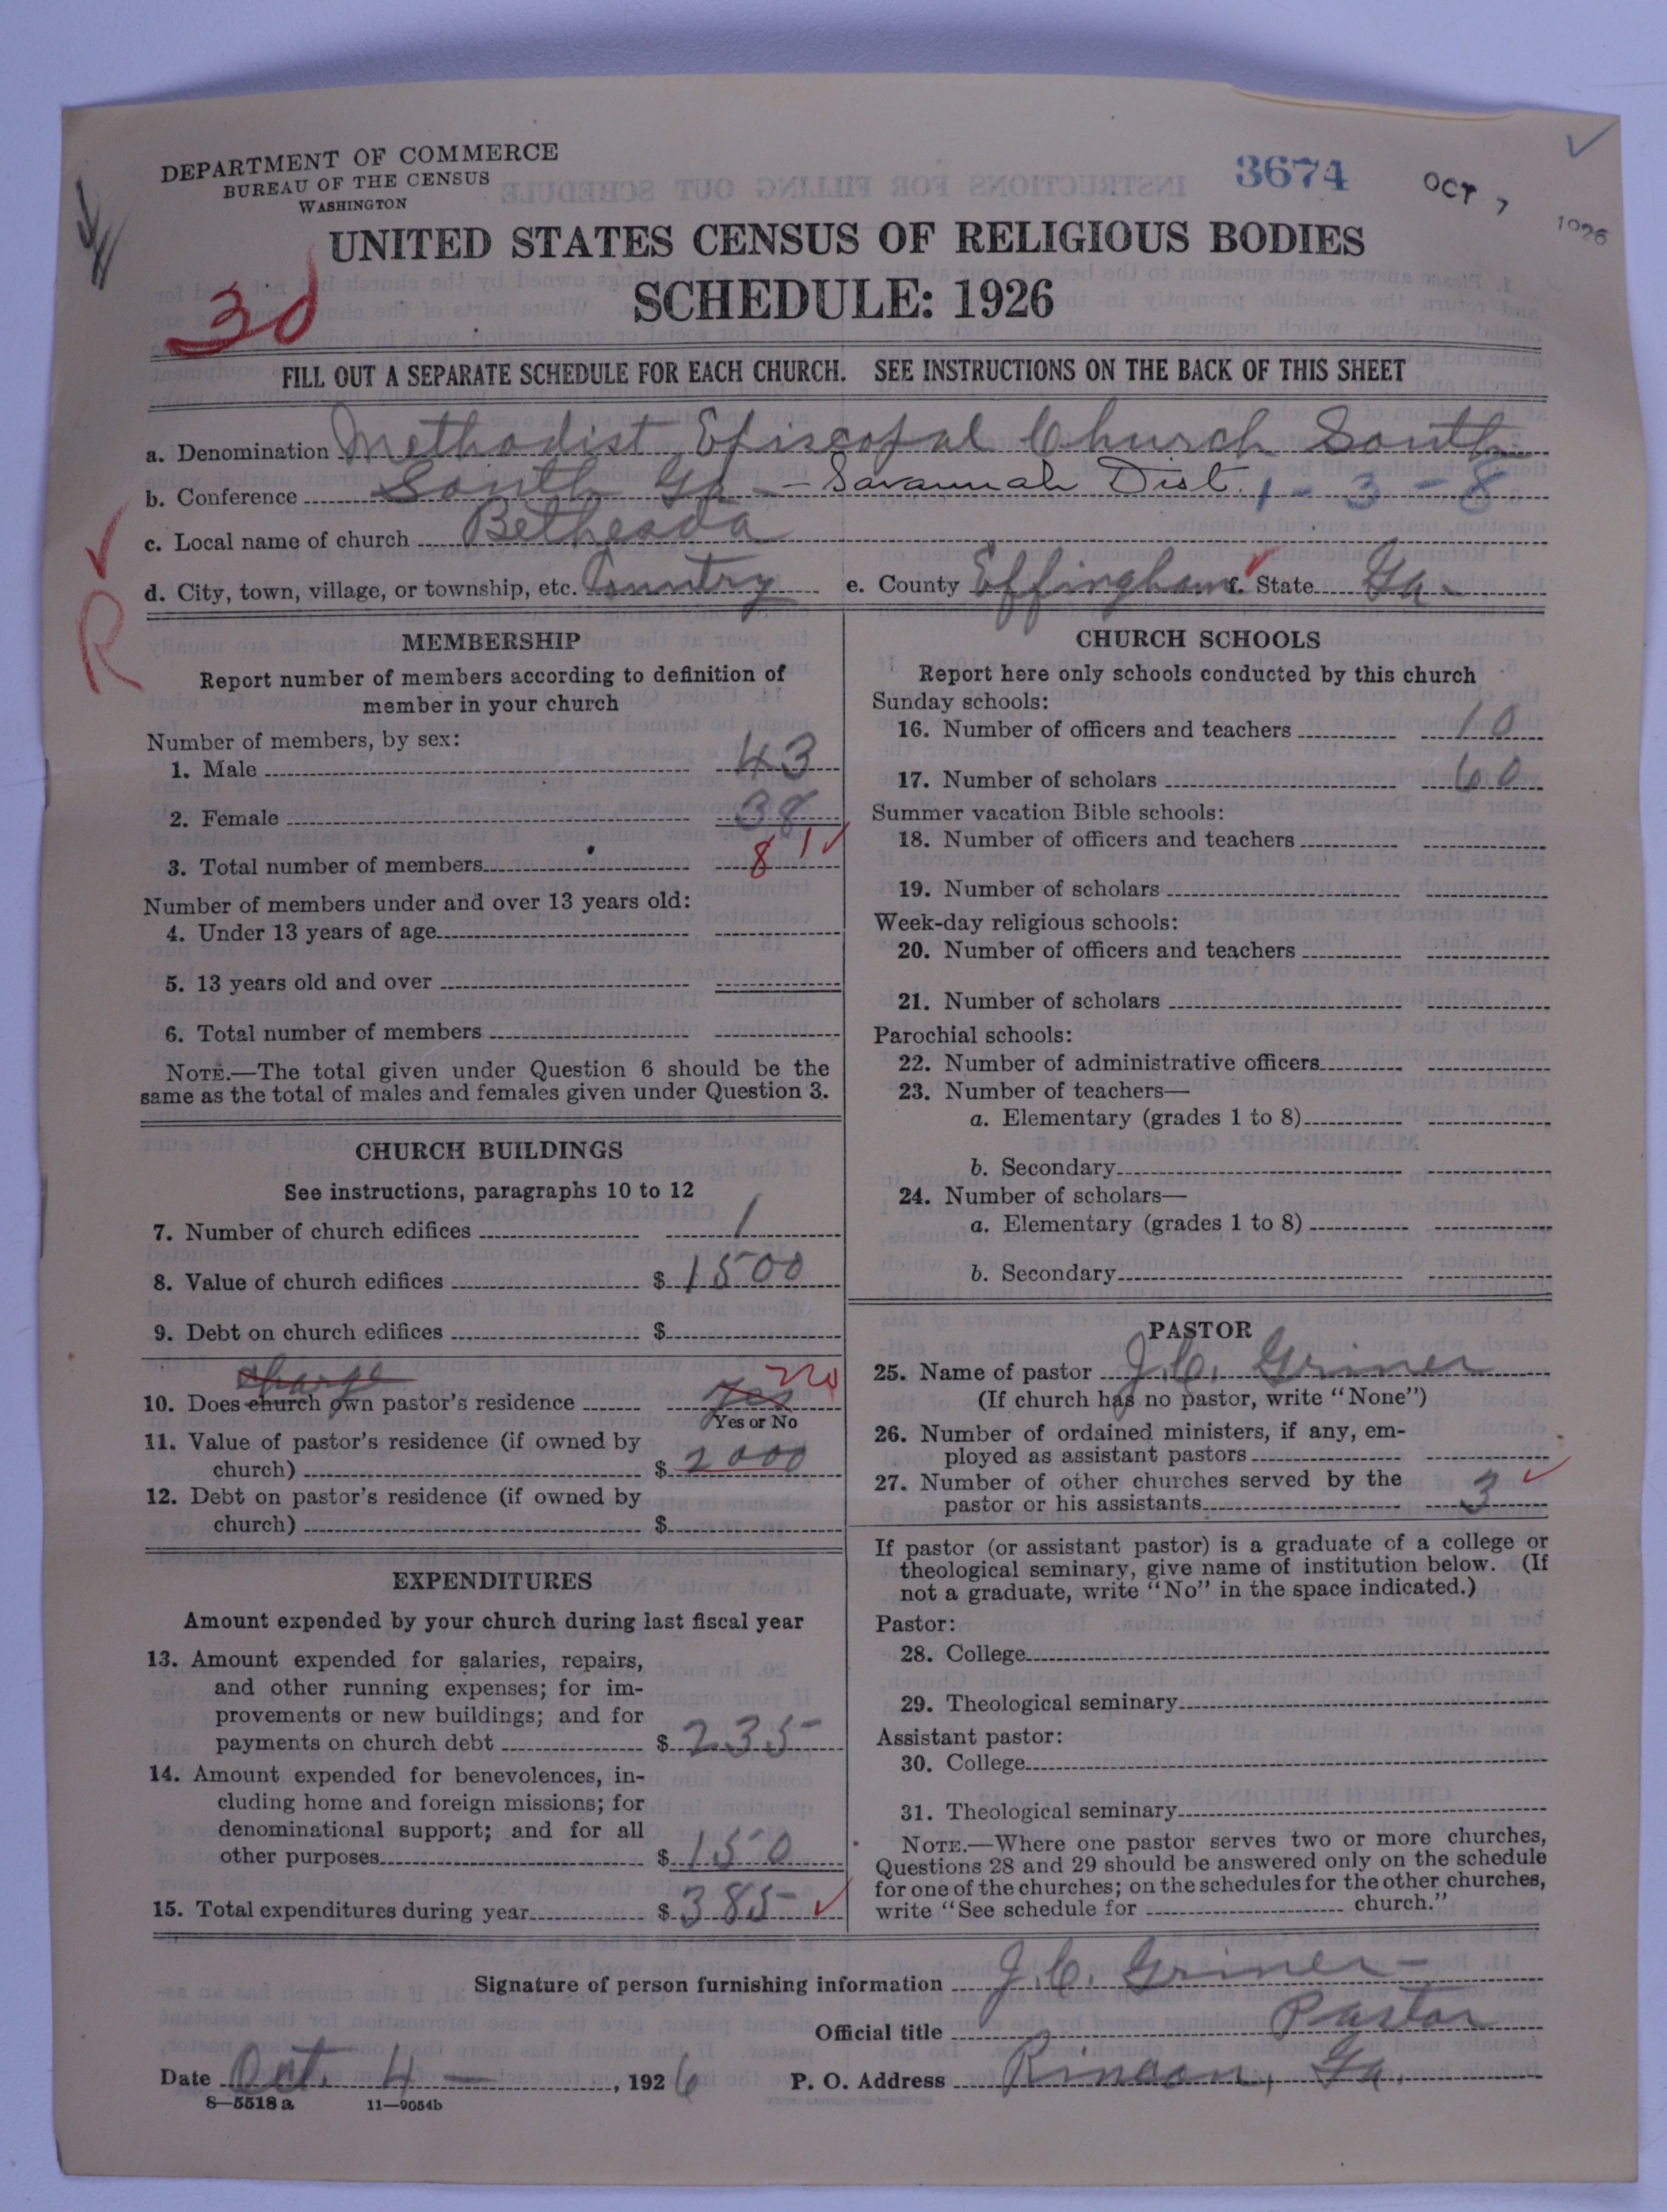 DEPARTMENT OF COMMERCE
BUREAU OF THE CENSUS
WASHINGTON
3674
OCT 7 1926
UNITED STATES CENSUS OF RELIGIOUS BODIES
SCHEDULE: 1926
FILL OUT A SEPARATE SCHEDULE FOR EACH CHURCH. SEE INSTRUCTIONS ON THE BACK OF THIS SHEET
a. Denomination Methodist Episcopal Church South
b. Conference South Ga - Savannah Dist. 1 - 3 - 8
c. Local name of church Bethesda
d. City, town, village, or township, etc. Country e. County Effingham f. State Ga.
R
MEMBERSHIP
Report number of members according to definition of
member in your church
Number of members, by sex:
1. Male 43
2. Female 38
3. Total number of members 81
Number of members under and over 13 years old:
4. Under 13 years of age
5. 13 years old and over
6. Total number of members
NOTE.—The total given under Question 6 should be the
same as the total of males and females given under Question 3.
CHURCH BUILDINGS
See instructions, paragraphs 10 to 12
7. Number of church edifices 1
8. Value of church edifices $ 1500
9. Debt on church edifices $
charge
10. Does church own pastor's residence Yes no
Yes or No
11. Value of pastor's residence (if owned by
church) $ 2000
12. Debt on pastor's residence (if owned by
church) $
EXPENDITURES
Amount expended by your church during last fiscal year
13. Amount expended for salaries, repairs,
and other running expenses; for im-
provements or new buildings; and for
payments on church debt $ 235
14. Amount expended for benevolences, in-
cluding home and foreign missions; for
denominational support; and for all
other purposes $ 150
15. Total expenditures during year $ 385
CHURCH SCHOOLS
Report here only schools conducted by this church
Sunday schools:
16. Number of officers and teachers 10
17. Number of scholars 60
Summer vacation Bible schools:
18. Number of officers and teachers
19. Number of scholars
Week-day religious schools:
20. Number of officers and teachers
21. Number of scholars
Parochial schools:
22. Number of administrative officers
23. Number of teachers—
a. Elementary (grades 1 to 8)
b. Secondary
24. Number of scholars—
a. Elementary (grades 1 to 8)
b. Secondary
PASTOR
25. Name of pastor J. C. Griner
(If church has no pastor, write "None")
26. Number of ordained ministers, if any, em-
ployed as assistant pastors
27. Number of other churches served by the
pastor or his assistants 3
If pastor (or assistant pastor) is a graduate of a college or
theological seminary, give name of institution below. (If
not a graduate, write "No" in the space indicated.)
Pastor:
28. College
29. Theological seminary
Assistant pastor:
30. College
31. Theological seminary
NOTE.—Where one pastor serves two or more churches,
Questions 28 and 29 should be answered only on the schedule
for one of the churches; on the schedules for the other churches,
write "See schedule for church."
Signature of person furnishing information J. C. Griner
Official title Pastor
Date Oct. 4 —, 1926 P. O. Address Rincon, Ga.
8—5518 a 11—9054b